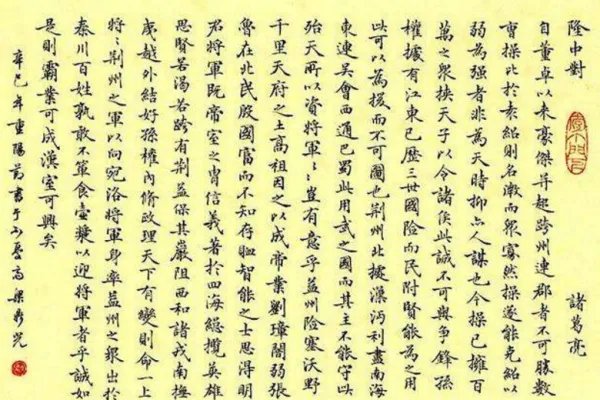 隆中對 諸葛亮
自董卓以来豪傑并起跨州連郡者不可勝數
曹操比於袁紹則名微而眾寡然操遂能克紹以
弱為强者非為天時抑亦人謀也今操已擁百
萬之眾挟天子以令諸侯此誠不可與争鋒孫
權據有江東已歷三世國險而民附賢能為之用
此可以為援而不可圖也荆州北據漢沔利盡南海
東連吴會西通巴蜀此用武之國而其主不能守此
殆天所以資將軍〻豈有意乎益州險塞沃野
千里天府之土高祖因之以成帝業劉璋闇弱張
魯在北民殷國富而不知存恤智能之士思得明
君將軍既帝室之胄信義著於四海總攬英雄
思賢若渴若跨有荆益保其巖阻西和諸戎南撫
夷越外結好孫權内修政理天下有變則命一上
將〻荆州之軍以向宛洛將軍身率益州之眾出於
秦川百姓孰敢不簞食壺漿以迎將軍者乎誠如
是則霸業可成漢室可興矣
辛巳年重陽前書于